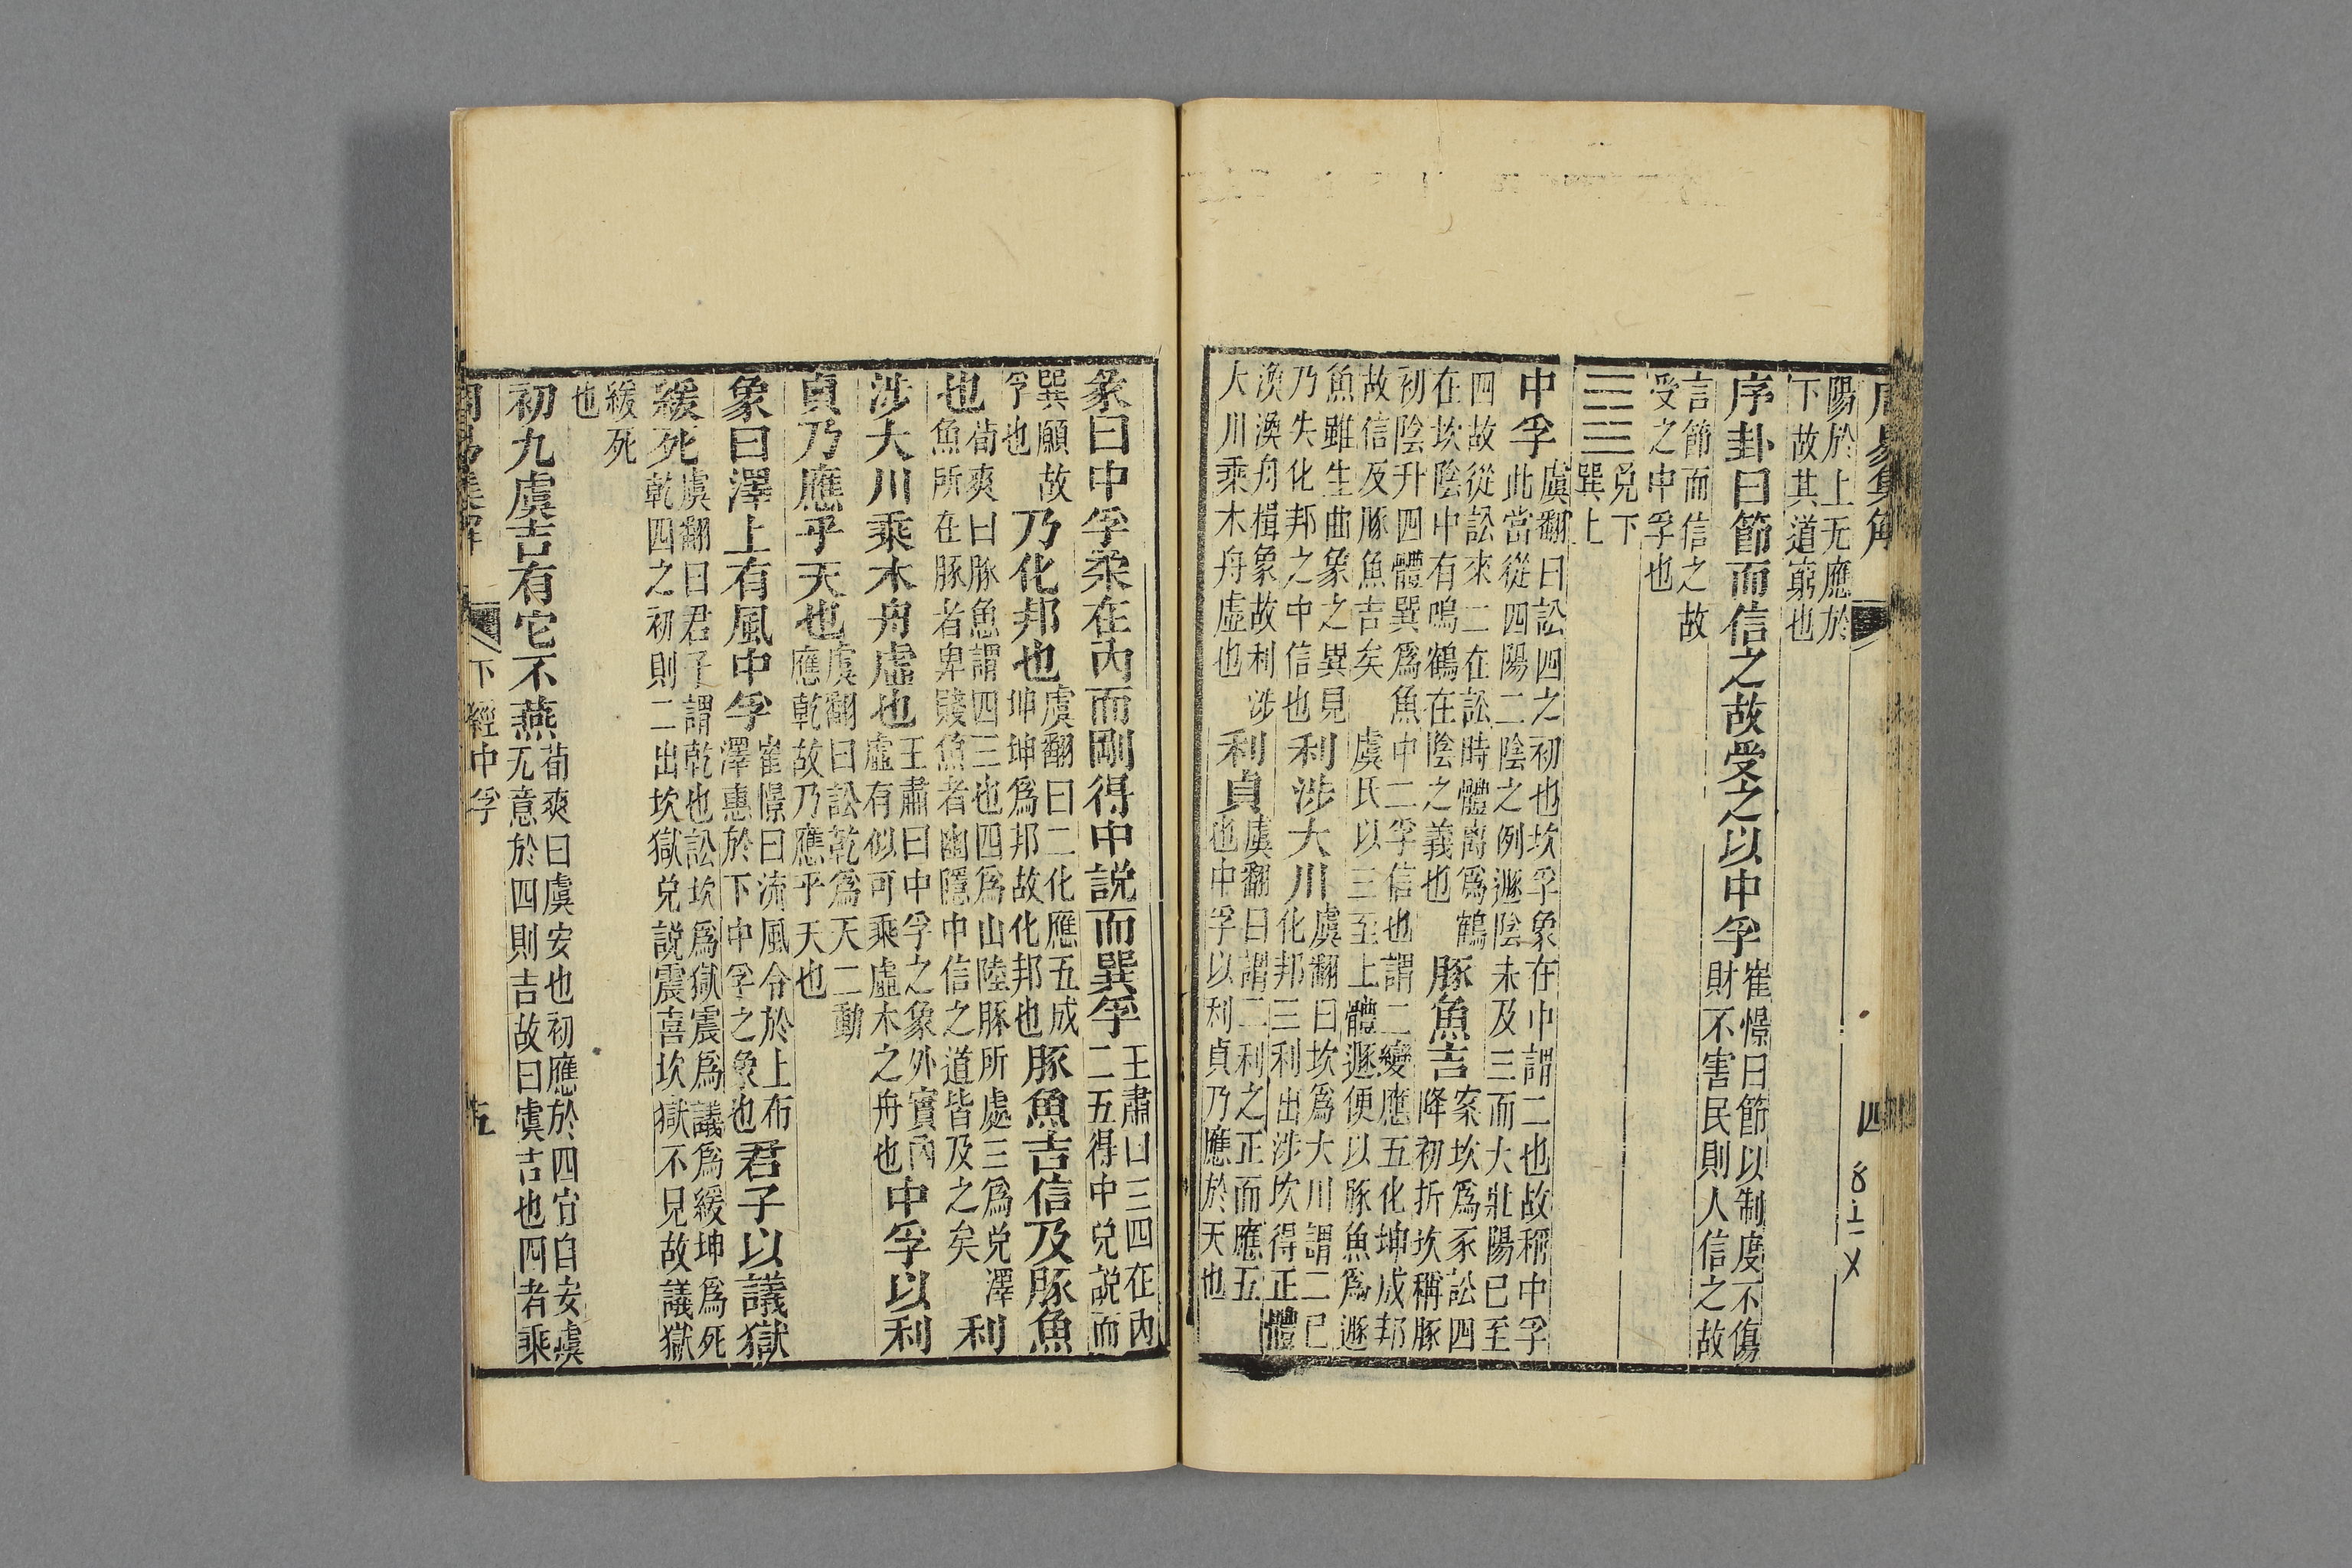 周易集解
四
陽於上无應於
下故其道窮也
序卦曰節而信之故受之以中孚 崔憬曰節以制度不傷
財不害民則人信之故
言節而信之故
受之中孚也
兌下
巽上
中孚 虞翻曰訟四之初也坎孚象在中謂二也故稱中孚
此當從四陽二陰之例遯陰未及三而大壯陽已至
四故從訟來二在訟時體离爲鶴
在坎陰中有鳴鶴在陰之義也
豚魚吉 案坎爲豕訟四
降初折坎稱豚
初陰升四體巽爲魚中二孚信也謂二變應五化坤成邦
故信及豚魚吉矣 虞氏以三至上體遯便以豚魚爲遯
魚雖生曲象之異見
乃失化邦之中信也
利涉大川 虞翻曰坎爲大川謂二已
化邦三利出涉坎得正體
渙渙舟楫象故利涉
大川乘木舟虛也
利貞 虞翻曰謂二利之正而應五
也中孚以利貞乃應於天也
彖曰中孚柔在內而剛得中說而巽孚 王肅曰三四在內
二五得中兌說而
巽願故
孚也
乃化邦也 虞翻曰二化應五成
坤坤爲邦故化邦也
豚魚吉信及豚魚
也 荀爽曰豚魚謂四三也四爲山陸豚所處三爲兌澤
魚所在豚者卑賤魚者幽隱中信之道皆及之矣
利
涉大川乘木舟虛也 王肅曰中孚之象外實內
虛有似可乘虛木之舟也
中孚以利
貞乃應乎天也 虞翻曰訟乾爲天二動
應乾故乃應乎天也
象曰澤上有風中孚 崔憬曰流風令於上布
澤惠於下中孚之象也
君子以議獄
緩死 虞翻曰君子謂乾也訟坎爲獄震爲議爲緩坤爲死
乾四之初則二出坎獄兌說震喜坎獄不見故議獄
緩死
也
初九虞吉有它不燕 荀爽曰虞安也初應於四宜自安虞
无意於四則吉故曰虞吉也四者乘
周易集解
下經中孚
五